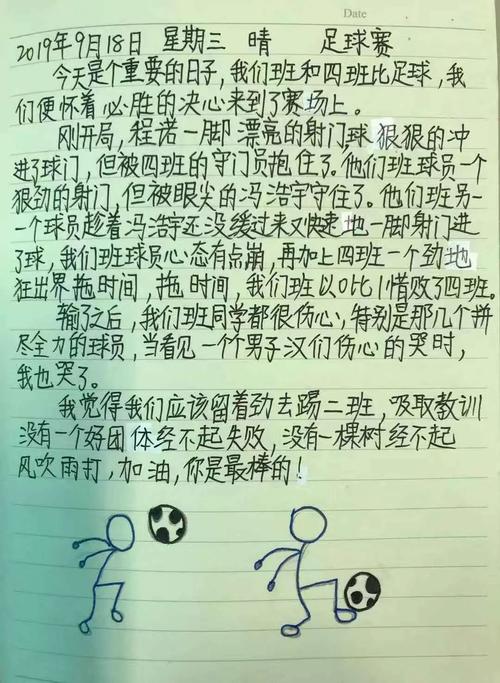 Date
2019年9月18日 星期三 晴 足球赛
今天是个重要的日子,我们班和四班比足球,我
们便怀着必胜的决心来到了赛场上。
刚开局,程诺一脚漂亮的射门,球狠狠的冲
进了球门,但被四班的守门员抱住了。他们班球员一个
狠劲的射门,但被眼尖的冯浩宇守住了。他们班另一
一个球员趁着冯浩宇还没缓过来又快速地一脚射门进
了球,我们班球员心态有点崩,再加上四班一个劲地
狂出界拖时间,拖时间,我们班以0比1惜败了四班。
输了之后,我们班同学都很伤心,特别是那几个拼
尽全力的球员,当看见一个个男子汉们伤心的哭时,
我也哭了。
我觉得我们应该留着劲去踢二班,吸取教训
没有一个好团体经不起失败,没有一棵树经不起
风吹雨打,加油,你是最棒的!